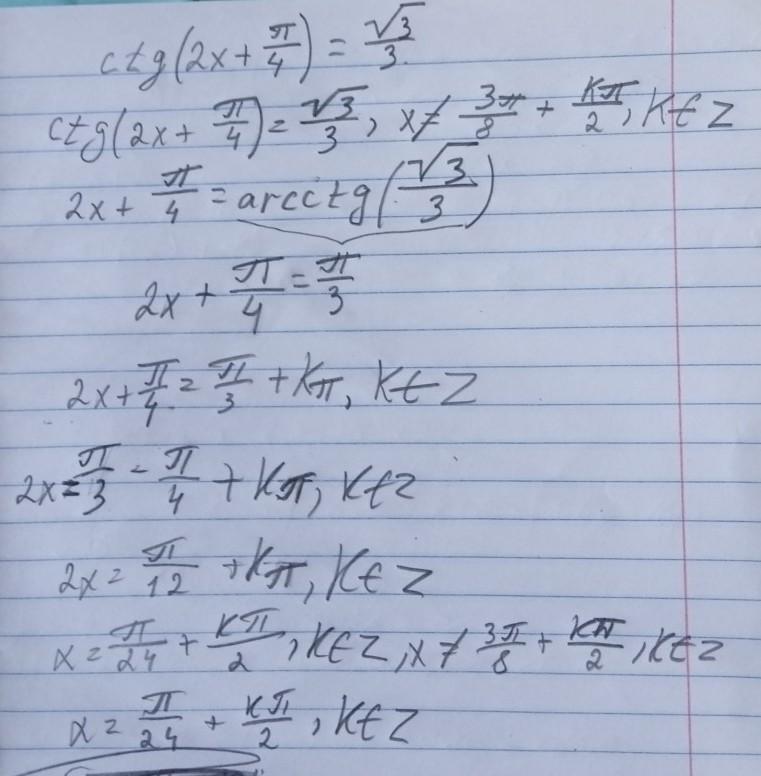 ctg(2x + π/4) = √3/3
ctg(2x + π/4) = √3/3, x ≠ 3π/8 + Kπ/2, K ∈ Z
2x + π/4 = arcctg(√3/3)
2x + π/4 = π/3
2x + π/4 = π/3 + Kπ, K ∈ Z
2x = π/3 - π/4 + Kπ, K ∈ Z
2x = π/12 + Kπ, K ∈ Z
x = π/24 + Kπ/2, K ∈ Z, x ≠ 3π/8 + Kπ/2, K ∈ Z
x = π/24 + Kπ/2, K ∈ Z